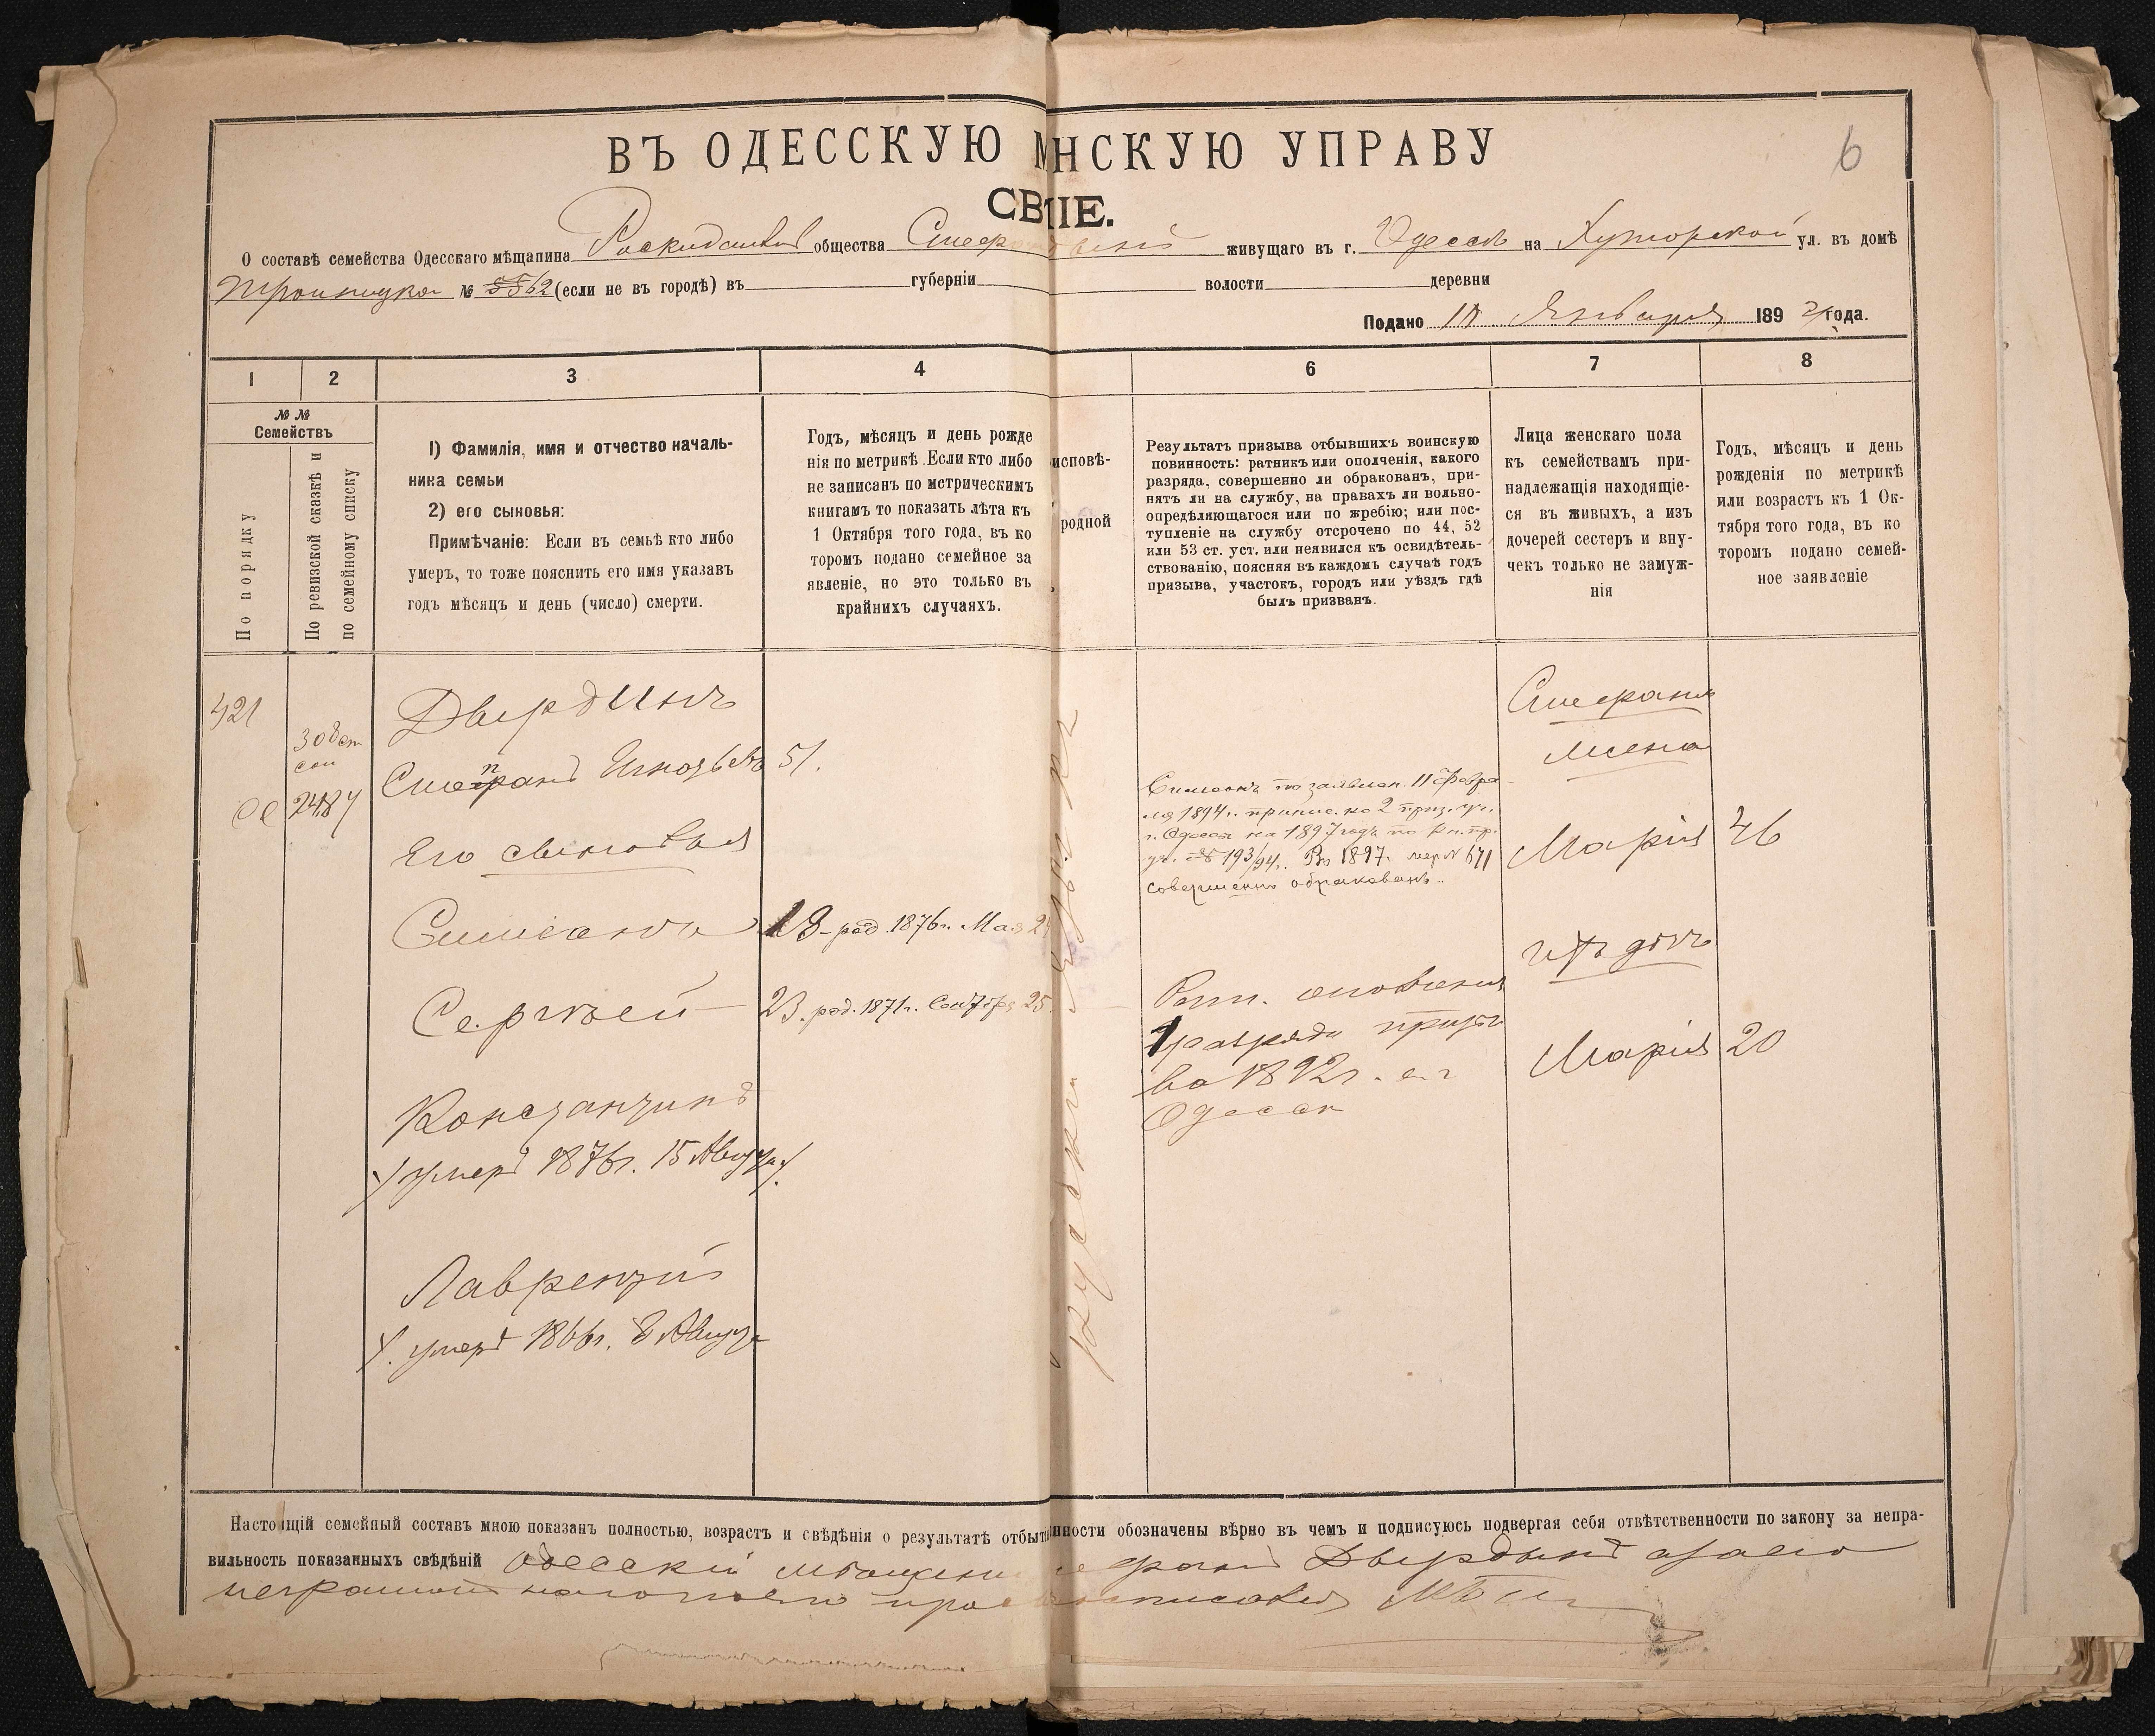 6
ВЪ ОДЕССКУЮ НСКУЮ УПРАВУ
СВ ІЕ.
О составѣ семейства Одесскаго мѣщанина общества живущаго въ г. Одессѣ на Хуторской ул. въ домѣ
Троицкаго № 62 (если не въ городѣ) въ губерніи волости деревни
Подано Января 189 года.
1 2 3 4 6 7 8
№ №
Семействъ
По порядку
По ревизской сказкѣ и
по семейному списку
1) Фамилія, имя и отчество началь-
ника семьи
2) его сыновья:
Примѣчаніе: Если въ семьѣ кто либо
умеръ, то тоже пояснить его имя указавъ
годъ мѣсяцъ и день (число) смерти.
Годъ, мѣсяцъ и день рожде
нія по метрикѣ. Если кто либо
не записанъ по метрическимъ
книгамъ то показать лѣта къ
1 Октября того года, въ ко
торомъ подано семейное за
явленіе, но это только въ
крайнихъ случаяхъ.
исповѣ-
родной
Результатъ призыва отбывшихъ воинскую
повинность: ратникъ или ополченія, какого
разряда, совершенно ли обракованъ, при-
нятъ ли на службу, на правахъ ли вольно-
опредѣляющагося или по жребію; или пос-
тупленіе на службу отсрочено по 44, 52
или 53 ст. уст. или неявился къ освидѣтель-
ствованію, поясняя въ каждомъ случаѣ годъ
призыва, участокъ, городъ или уѣздъ гдѣ
былъ призванъ.
Лица женскаго пола
къ семействамъ при-
надлежащія находящіе-
ся въ живыхъ, а изъ
дочерей сестеръ и вну-
чекъ только не замуж-
нія
Годъ, мѣсяцъ и день
рожденія по метрикѣ
или возрастъ къ 1 Ок-
тября того года, въ ко
торомъ подано семей-
ное заявленіе
421
2487
Двердинъ
Степанъ 51.
Его сыновья
Симеонъ 18 - род. 1876г. Мая
Сергѣй 23. род. 1871г. Сентября 25
Константинъ
умеръ 1876г. 15 Авгу
Лаврентій
умеръ 1866г. 8 Авгу
Симеонъ по заявлен. 11 Февра-
ля 1894г. припис. ко 2 приз. уч.
г. Одессы на 1897 годъ по
193/94г. Въ 1897г. 671
совершенно обракованъ.
Рат. ополченія
1 разряда
1892г.
Одесса
Степана
жена
Марія 46
ихъ дочь
Марія 20
Настоящій семейный составъ мною показанъ полностью, возрастъ и свѣдѣнія о результатѣ отбыт нности обозначены вѣрно въ чемъ и подписуюсь подвергая себя отвѣтственности по закону за непра-
вильность показанныхъ свѣдѣній одесскій Двердынъ
неграмотн